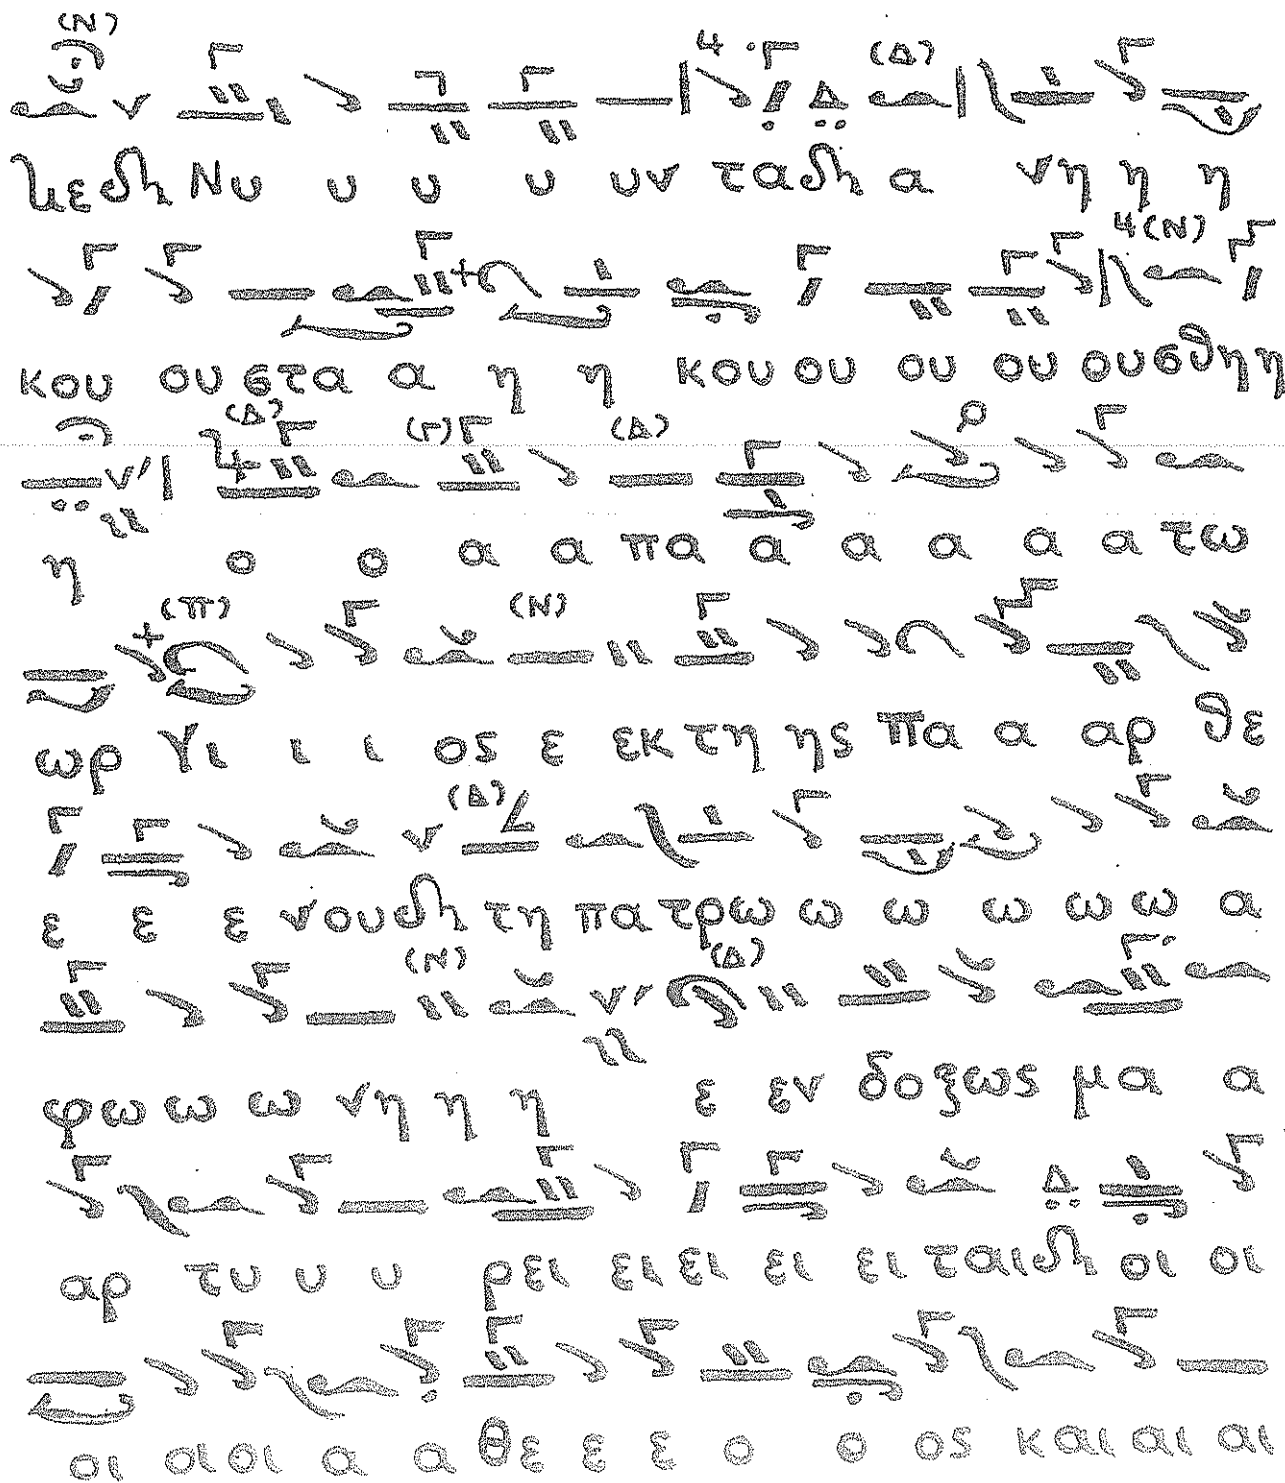 (Ν) 4 (Δ)
κε δη Νυ υ υ υ υν τα δη α νη η η
4(Ν)
κου ου στα α η η κου ου ου ου ουσθηη
(Δ) (Γ) (Δ)
η ο ο α α πα α α α α α τω
(π) (Ν)
ωρ γι ι ι ος ε εκ τη ης πα α αρ θε
(Δ)
ε ε ε νου δη τη πα τρω ω ω ω ω ω α
(Ν) (Δ)
φω ω ω νη η η ε εν δοξως μα α
αρ τυ υ υ ρει ει ει ει ει ται δη οι οι
οι οι οι α α θε ε ε ο ο ος και αι αι